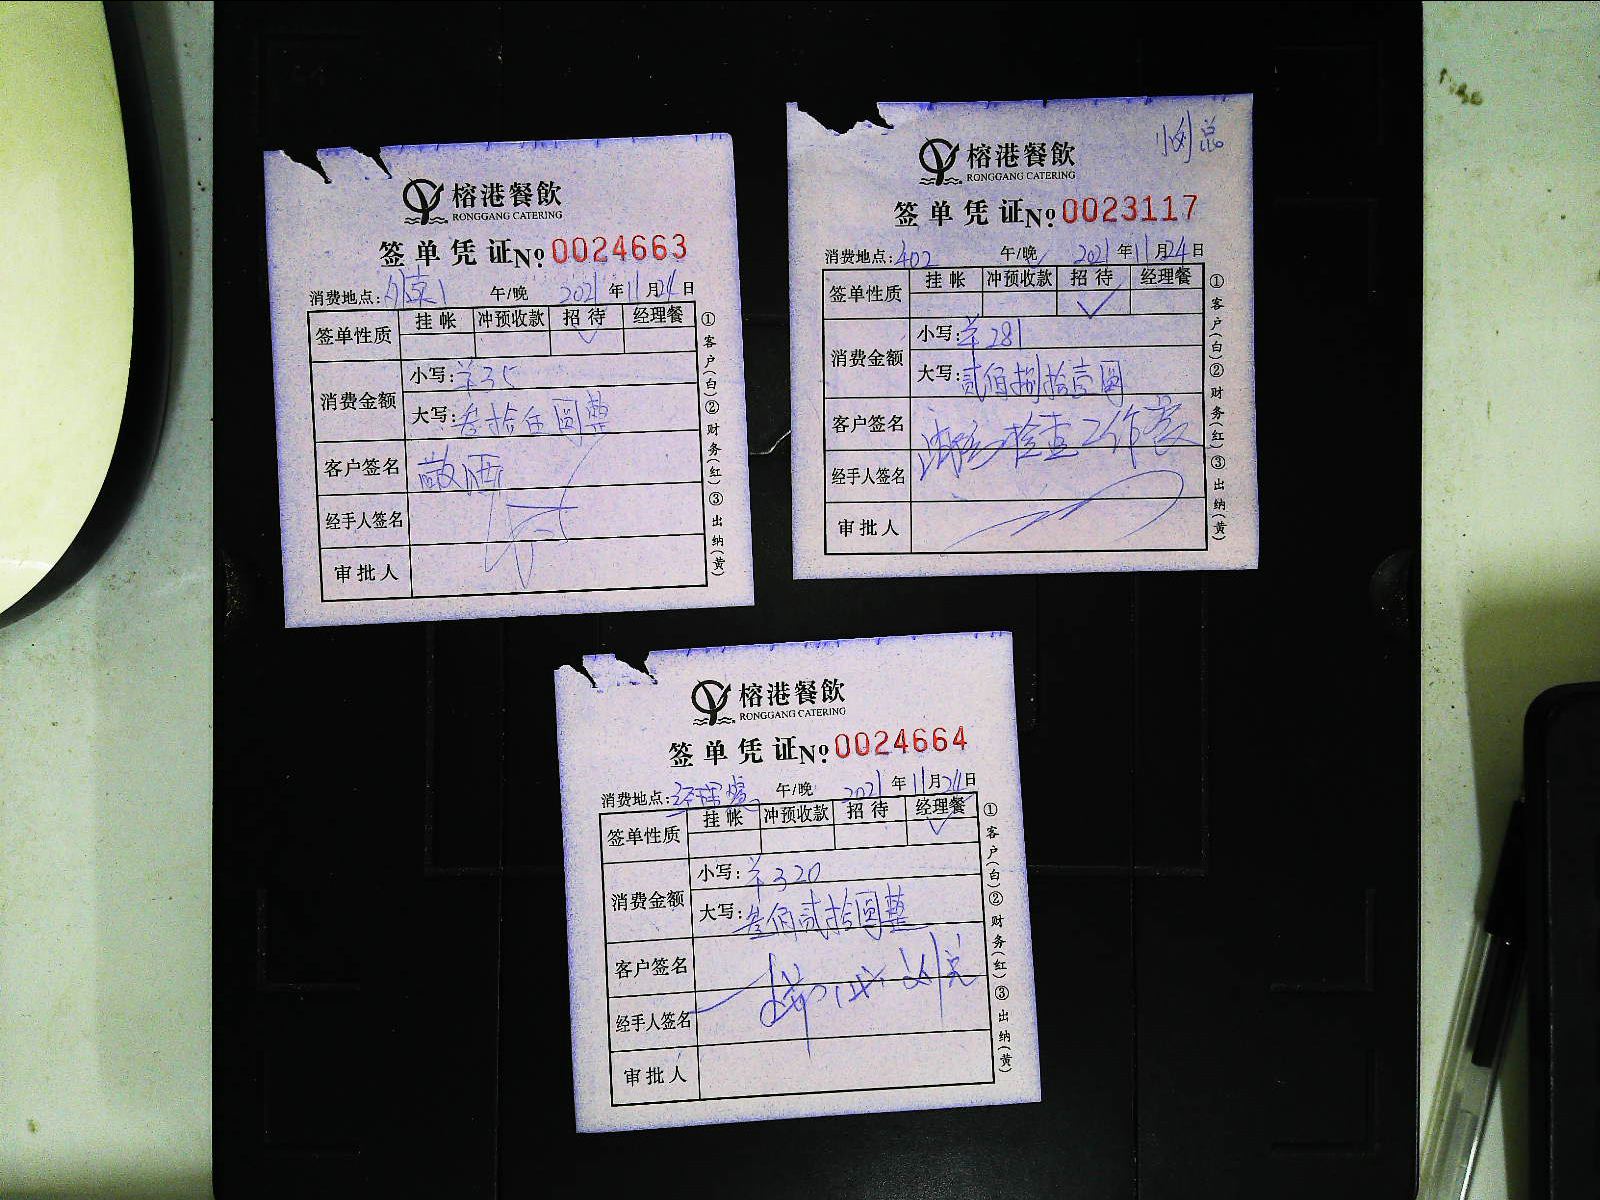 榕港餐飲
RONGGANG CATERING
签单凭证 No. 0024663
消费地点: 午/晚 2021年11月24日
签单性质 挂帐 冲预收款 招待 ✓ 经理餐
消费金额 小写: 羊35
大写: 叁拾伍圆整
客户签名
经手人签名
审批人
①客户(白)②财务(红)③出纳(黄)
刘总
榕港餐飲
RONGGANG CATERING
签单凭证 No. 0023117
消费地点: 402 午/晚 2021年11月24日
签单性质 挂帐 冲预收款 招待 ✓ 经理餐
消费金额 小写: 羊281
大写: 贰佰捌拾壹圆
客户签名 检查工作餐
经手人签名
审批人
①客户(白)②财务(红)③出纳(黄)
榕港餐飲
RONGGANG CATERING
签单凭证 No. 0024664
消费地点: 经理餐 午/晚 2021年11月24日
签单性质 挂帐 冲预收款 招待 经理餐 ✓
消费金额 小写: 羊320
大写: 叁佰贰拾圆整
客户签名 刘总
经手人签名
审批人
①客户(白)②财务(红)③出纳(黄)